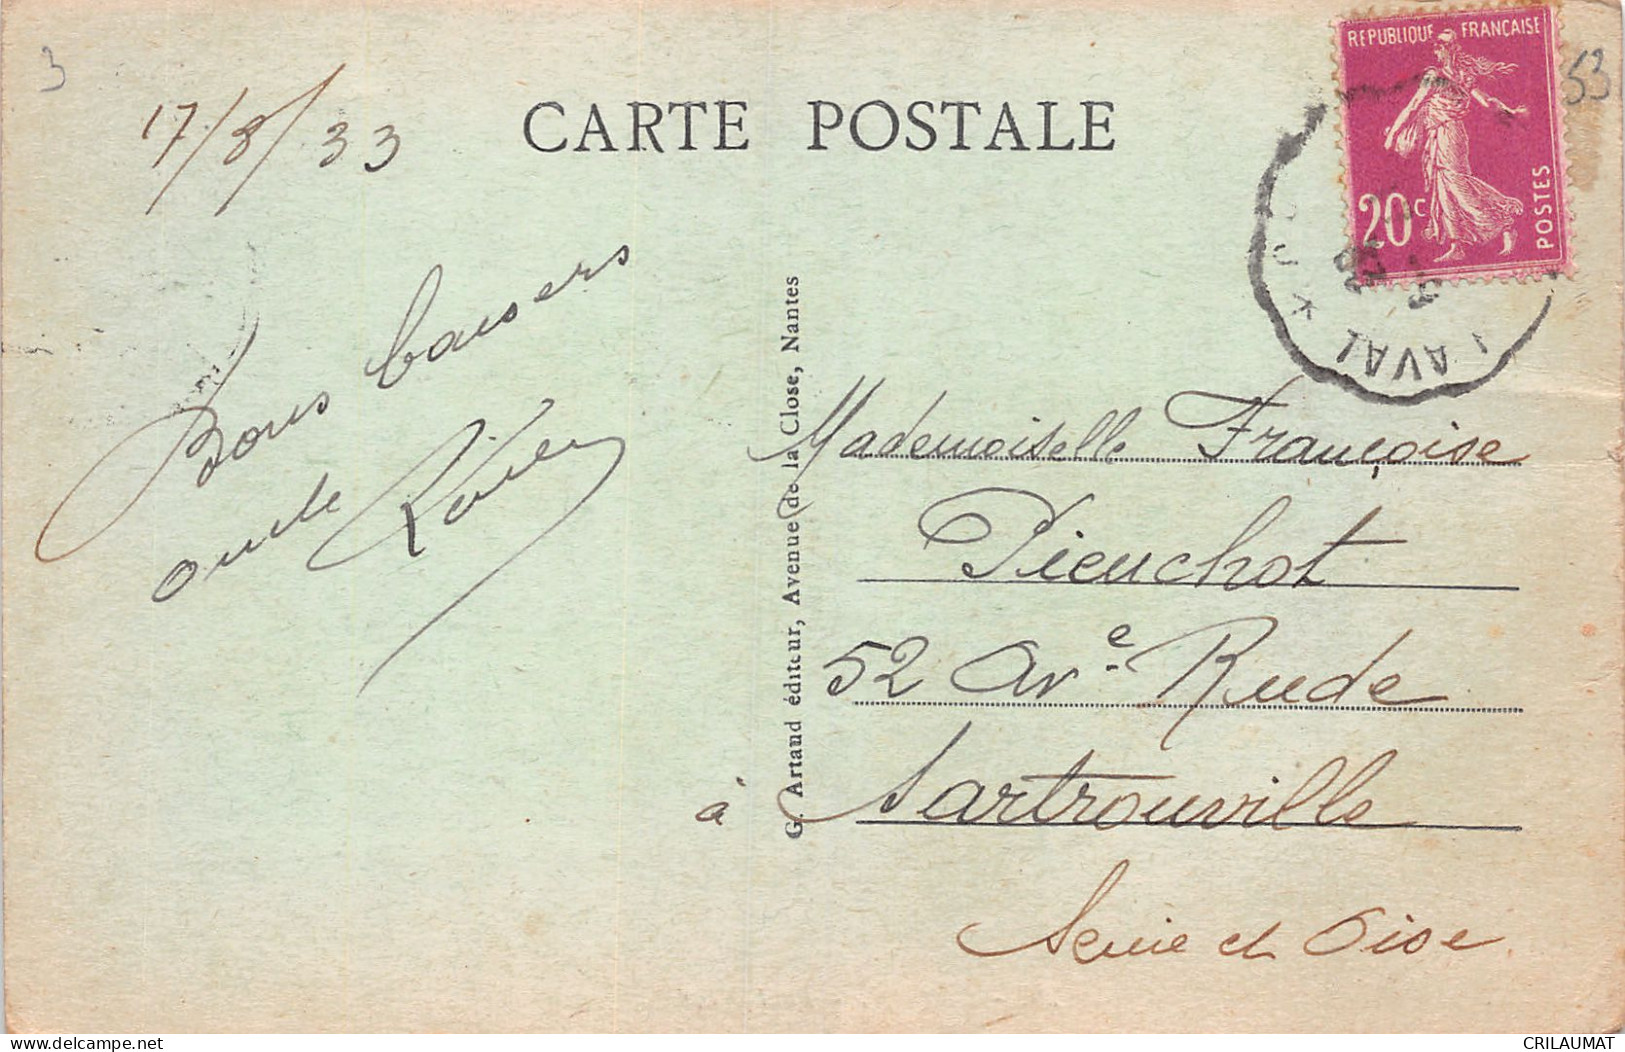 3
17/8/33
CARTE POSTALE
REPUBLIQUE FRANÇAISE
20c
POSTES
53
LAVAL
Bons baisers
oncle
G. Artaud éditeur, Avenue de la Close, Nantes
Mademoiselle Françoise
Pieuchot
52 Ave Rude
à Sartrouville
Seine et Oise.
delcampe.net
CRILAUMAT